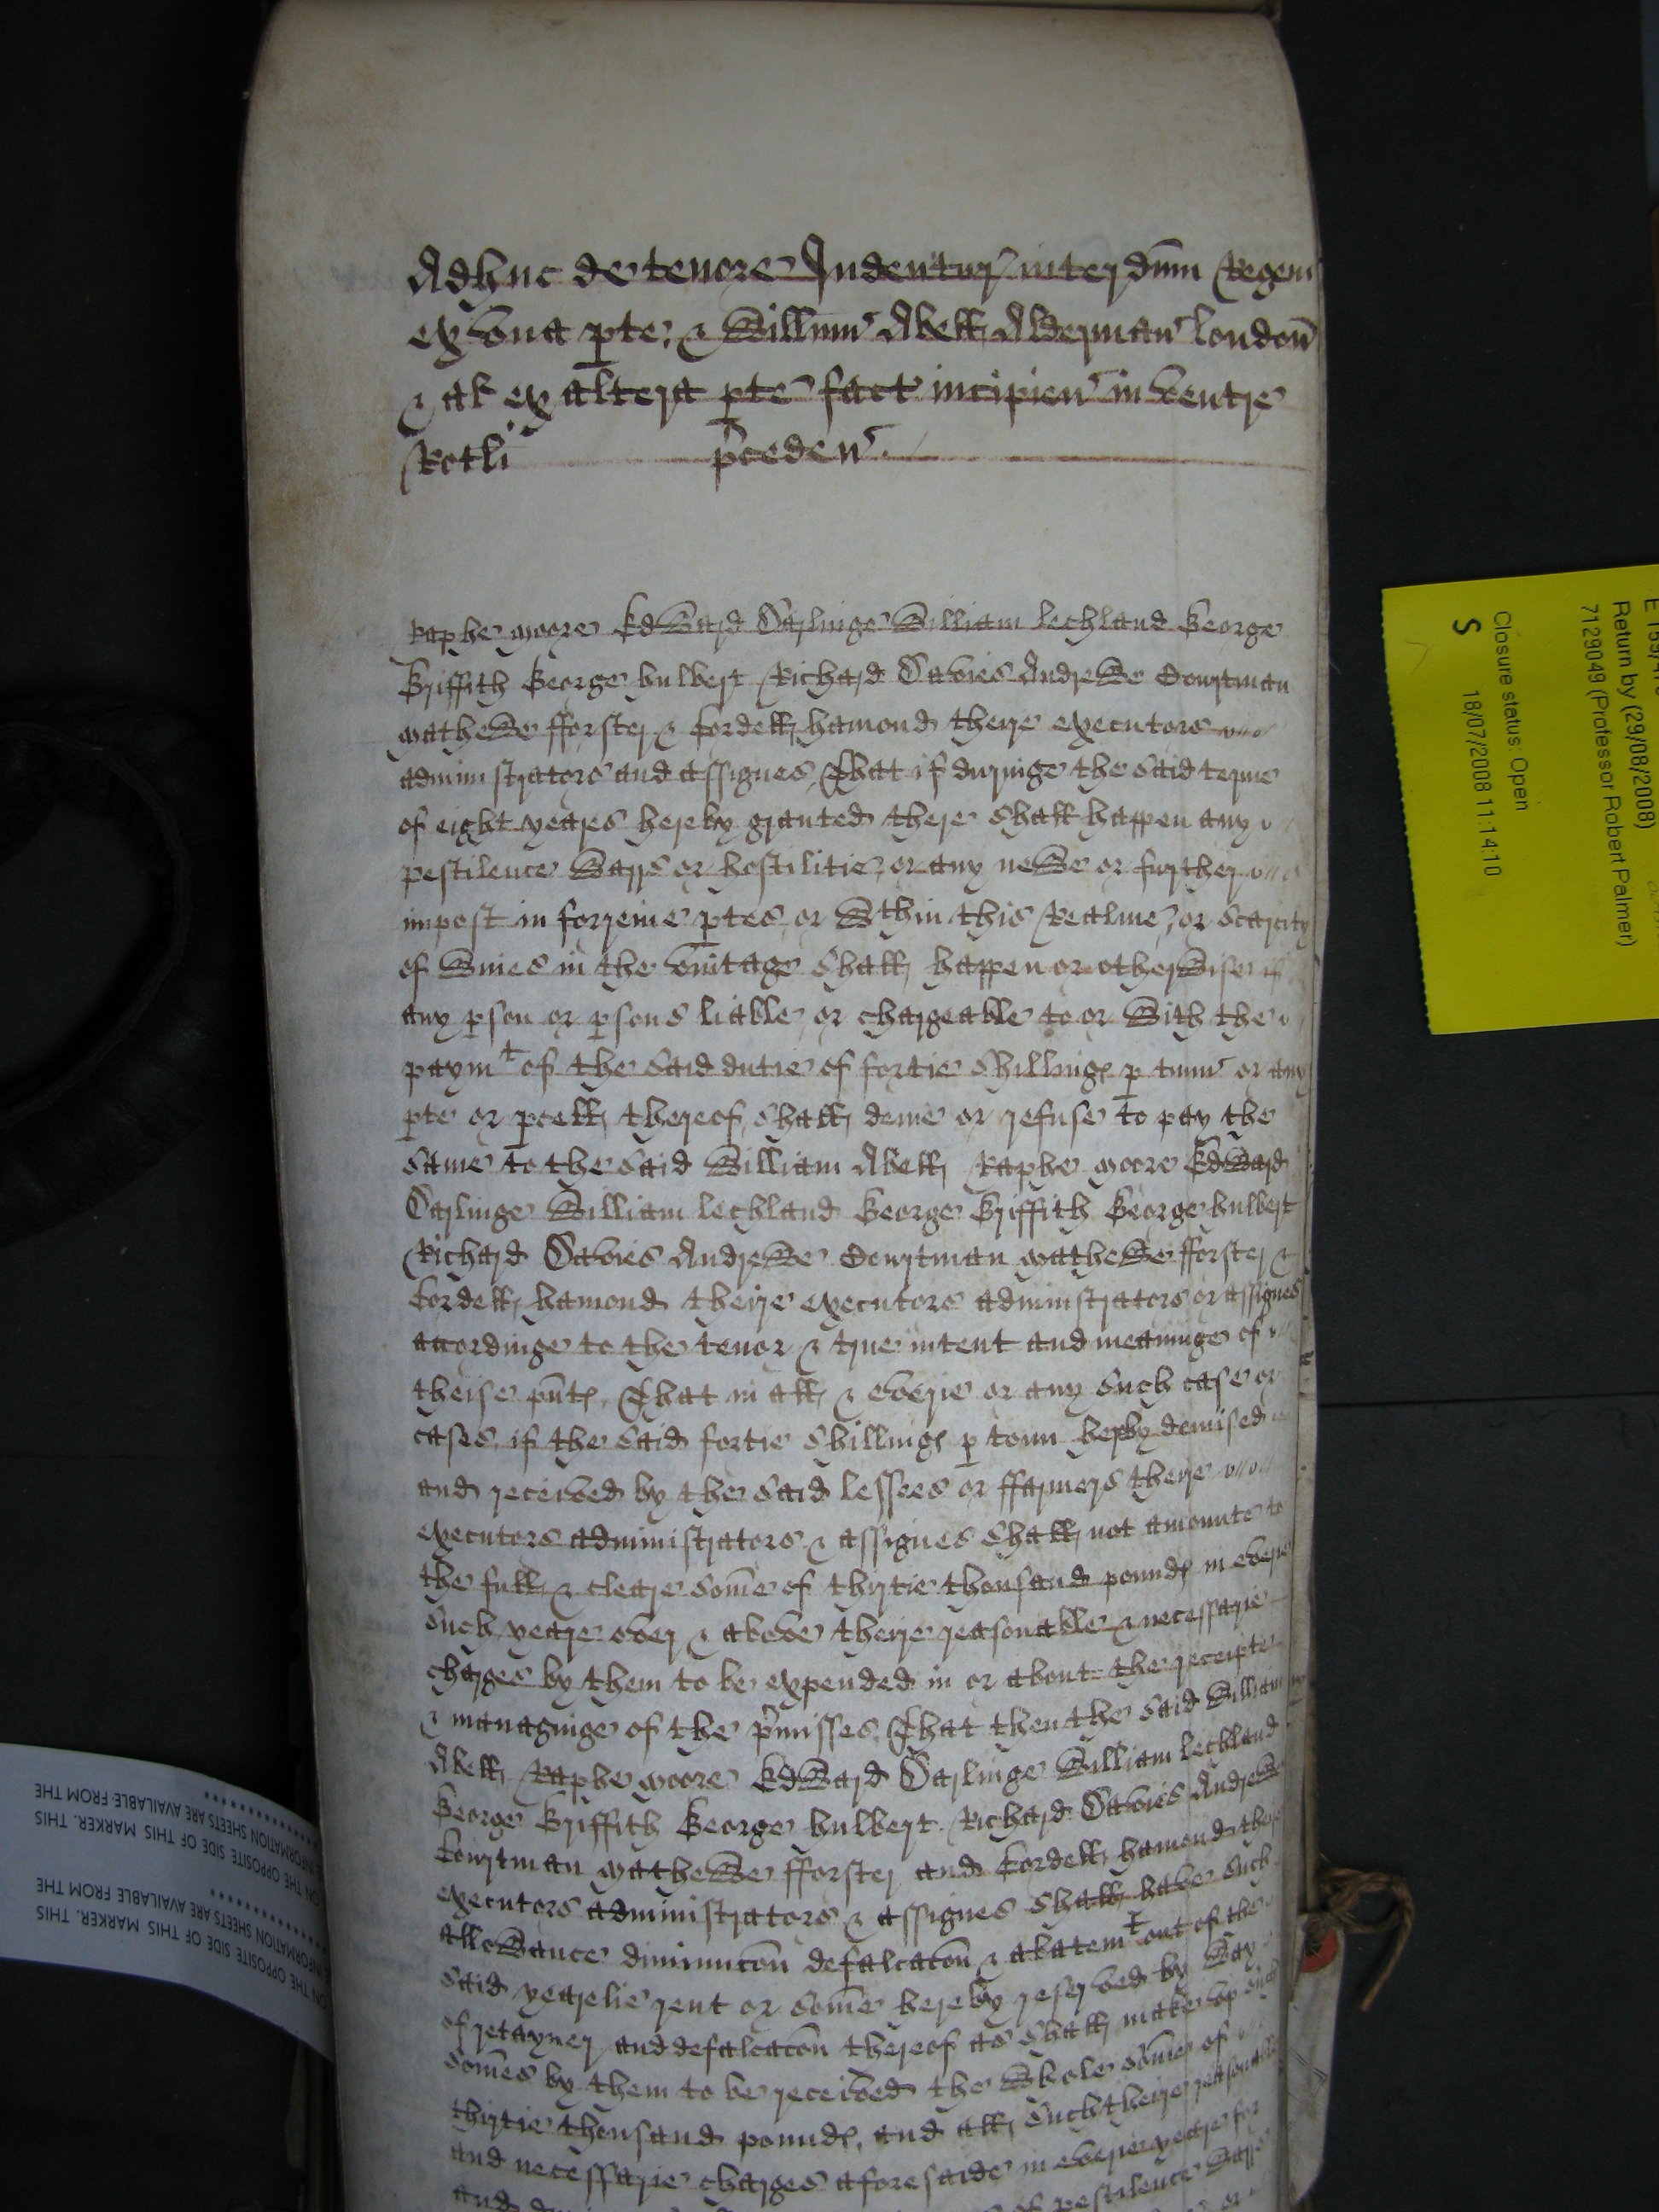 Adhuc de tenore Indentur inter dnm Regem
ex una pte & Willmm Abell Alderman London
& al ex altera pte fact incipien in ventre
Rotli pceden
Raphe Moore Edward Darlinge William Lechland George
Griffith George hulbert Richard Davies Andrewe
Mathewe fforster & Cordell hamond theire executors
administrators and assignes, That if duringe the said terme
of eight yeares hereby granted there shall happen any
pestilence warrs or hostilitie, or any newe or further
impost in forreine ptes, or wthin this Realme, or scarcity
of wines in the vintage shall happen or otherwise if
any pson or psons liable or chargeable to or with the
paymt of the said dutie of fortie shillings p tunn or any
pte or pcell thereof, shall denie or refuse to pay the
same to the said William Abell Raphe Moore Edward
Darlinge William Lechland George Griffith George hulbert
Richard Davies Andrewe Mathewe fforster &
Cordell hamond theire executors administrators or assignes
accordinge to the tenor & true intent and meaninge of
theise pnts, That in all & everie or any such case or
cases, if the said fortie shillings p tonn hereby demised
and received by the said lessees or ffarmers theire
executors administrators & assignes shall not amounte to
the full & cleare some of thirtie thousand pounds in everie
such yeare over & above theire reasonable & necessarie
charges by them to be expended in or about the receipte
& managinge of the pmisses, That then the said William
Abell Raphe Moore Edward Darlinge William Lechland
George Griffith George hulbert Richard Davies Andrewe
Mathewe fforster and Cordell hamond theire
executors administrators & assignes shall have such
allowance diminucon defalcacon & abatemt out of the
said yearelie rent or some hereby reserved by way
of retayner and defalcacon thereof as shall make up such
somes by them to be received the whole some of
thirtie thousand pounds, and all such theire reasonable
and necessarie charges aforesaide in everie yeare for
pestilence warrs
E 159/
Return by (29/08/2008)
7129049 (Professor Robert Palmer)
Closure status: Open
18/07/2008 11:14:10
S
ON THE OPPOSITE SIDE OF THIS MARKER. THIS
INFORMATION SHEETS ARE AVAILABLE FROM THE
ON THE OPPOSITE SIDE OF THIS MARKER. THIS
INFORMATION SHEETS ARE AVAILABLE FROM THE